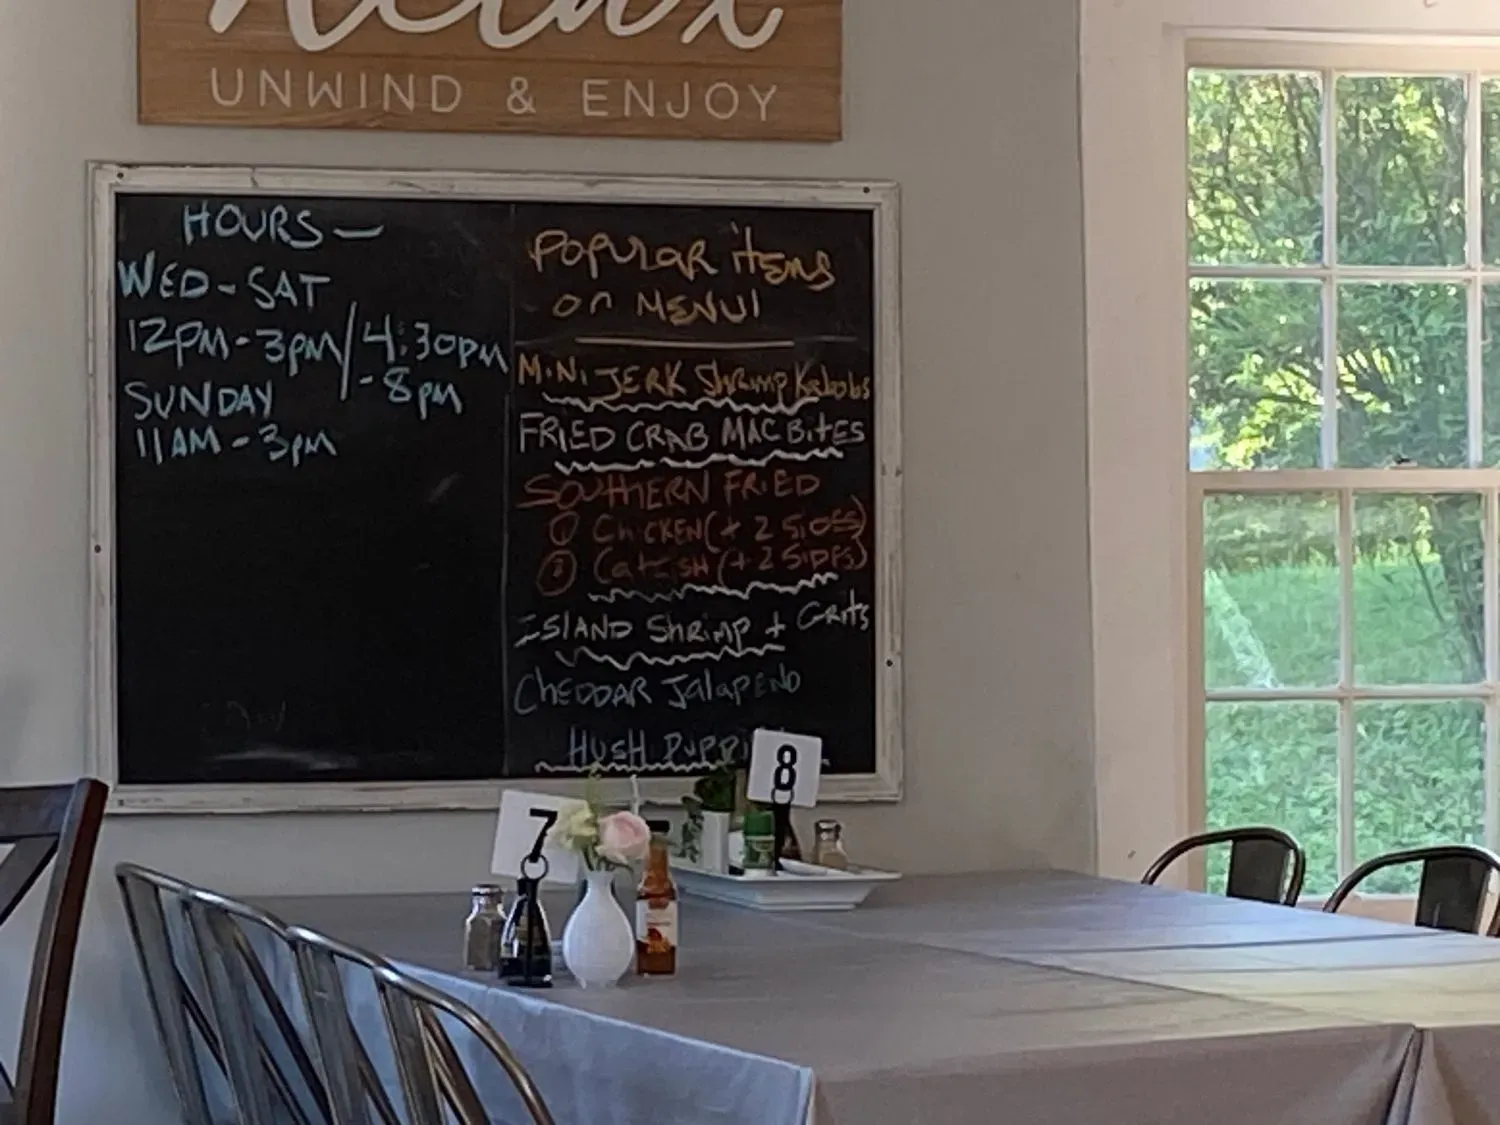 Relax
UNWIND & ENJOY
HOURS —
WED - SAT
12PM - 3PM / 4:30PM
- 8PM
SUNDAY
11AM - 3PM
POPULAR items
on MENU!
MiNi JERK Shrimp Kabobs
FRIED CRAB MAC BitES
SOUTHERN FRIED
① ChiCKEN (+ 2 SiDES)
② CatfiSH (+ 2 SiDES)
ISLAND Shrimp + Grits
ChEDDAR JalapENO
HUSH PUPPI
7
8